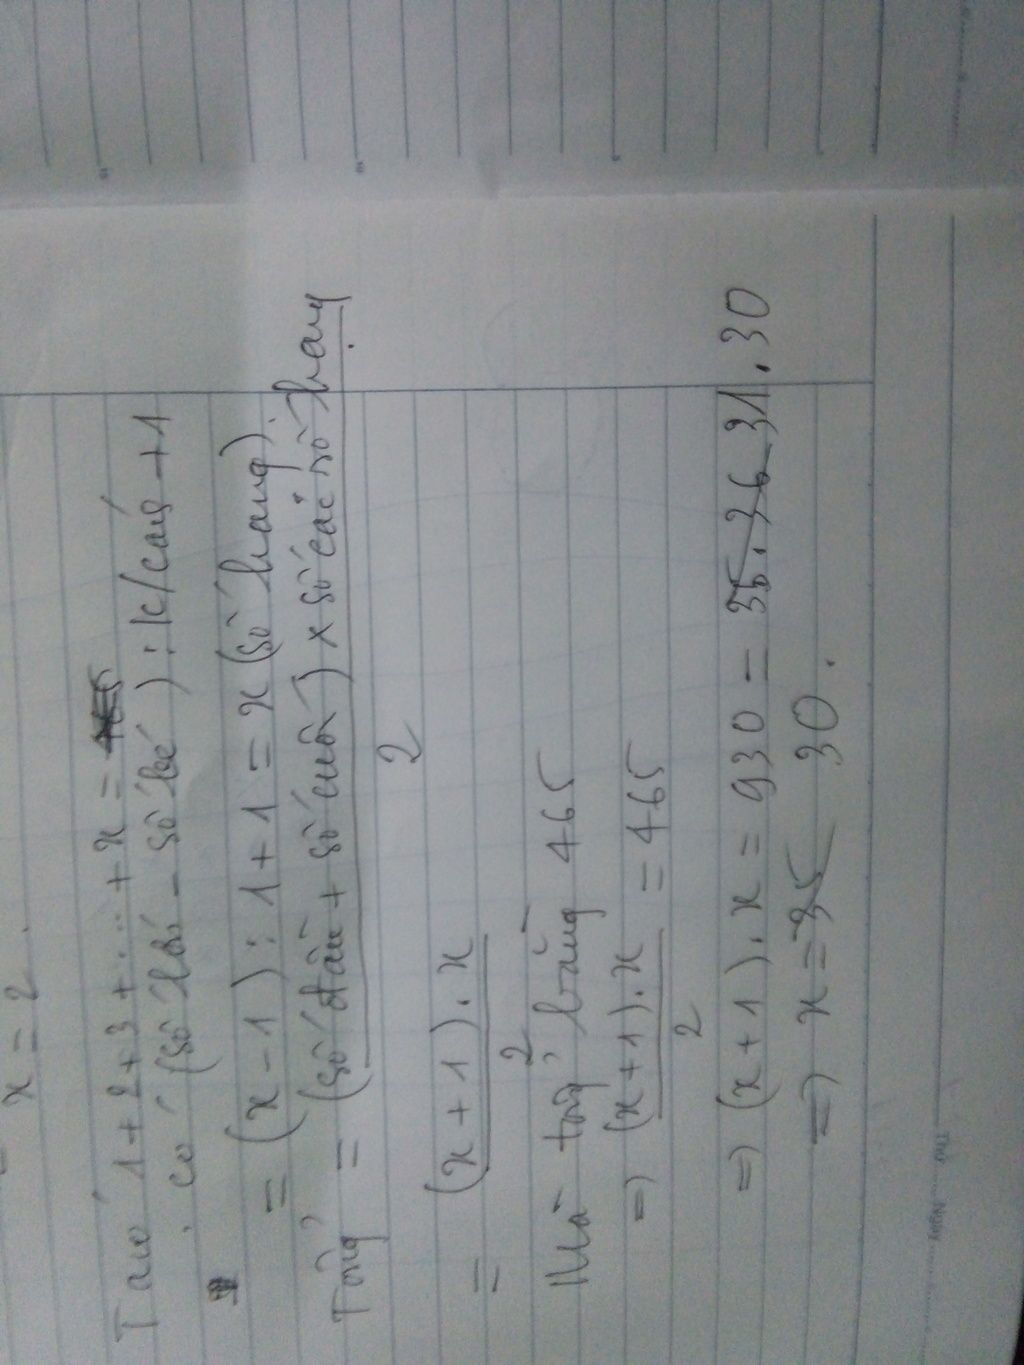 x = 2.
Ta có 1 + 2 + 3 + ... + x =
có (số lớn - số bé) : k/cách + 1
= (x - 1) : 1 + 1 = x (số hạng).
Tổng = (số đầu + số cuối) x số các số hạng
2
= (x + 1) . x
2
Mà tổng bằng 465
=> (x + 1) . x = 465
2
=> (x + 1) . x = 930 = 35 . 36 31 . 30
=> x = 35 30 .
Thứ Ngày